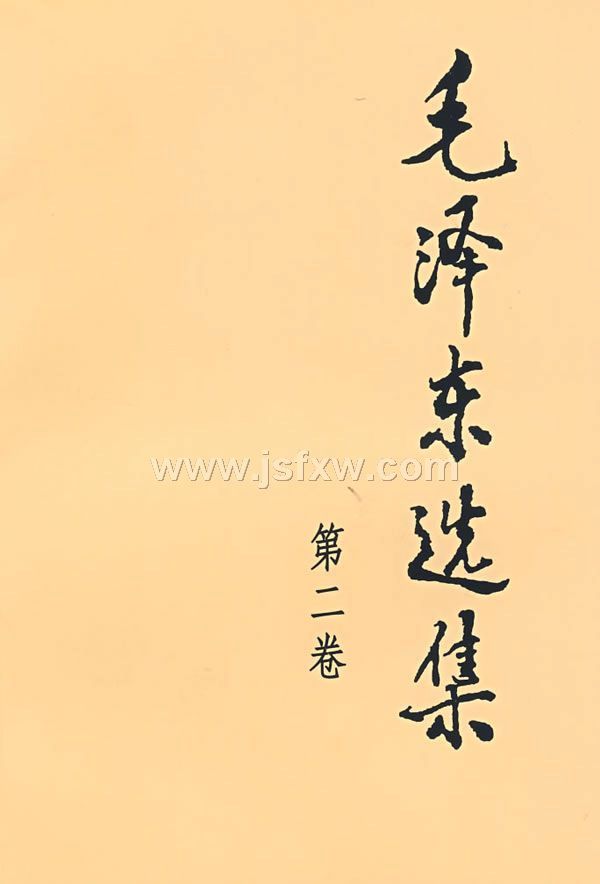 毛泽东选集
第二卷
www.jsfxw.com